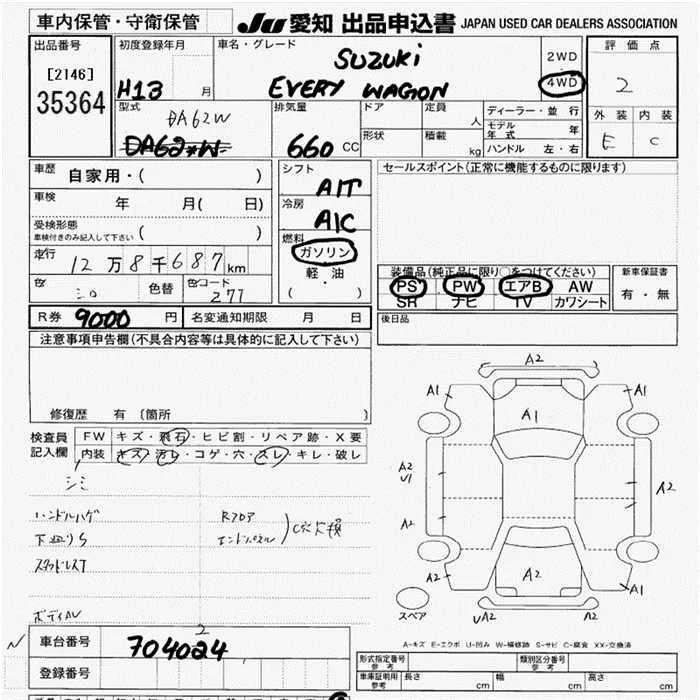 車内保管・守衛保管
JU 愛知 出品申込書 JAPAN USED CAR DEALERS ASSOCIATION
出品番号
[2146]
35364
初度登録年月
H13 月
車名・グレード
SUZUKI
EVERY WAGON
2WD
4WD
評価点
2
外装 内装
E C
型式
DA62W
排気量
660 CC
ドア 定員 人
形状 積載 kg
ディーラー・並行
モデル年式 年
ハンドル 左・右
車歴 自家用・( )
車検 年 月( 日)
受検形態
車検付きのみ記入して下さい ( )
走行 12万8千687km
色 シロ 色替 色コード Z77
シフト
A/T
冷房
A/C
燃料
ガソリン
軽・油
( )
セールスポイント(正常に機能するものに限ります)
装備品(純正品に限り○をつけてください)
PS PW エアB AW
SR ナビ TV カワシート
新車保証書
有・無
後日品
R券 9000 円 名変通知期限 月 日
注意事項申告欄(不具合内容等は具体的に記入して下さい)
修復歴 有(箇所
検査員
記入欄
FW キズ・飛石・ヒビ割・リペア跡・X要
内装 キズ・汚レ・コゲ・穴・スレ・キレ・破レ
シミ
ハンドルハゲ
下廻りS
スタッドレスT
Rフロア
エンドパネル
C穴欠損
A2
A1 A1
A1
A2
U1
A2
A2
A2
A2 A1
スペア
UA2 A2
A-キズ E-エクボ U-凹み W-補修跡 S-サビ C-腐食 XX-交換済
車台番号 704024
2
登録番号
形式指定番号
参考
類別区分番号
参考
車庫証明用
参考
長さ cm 幅 cm 高さ cm